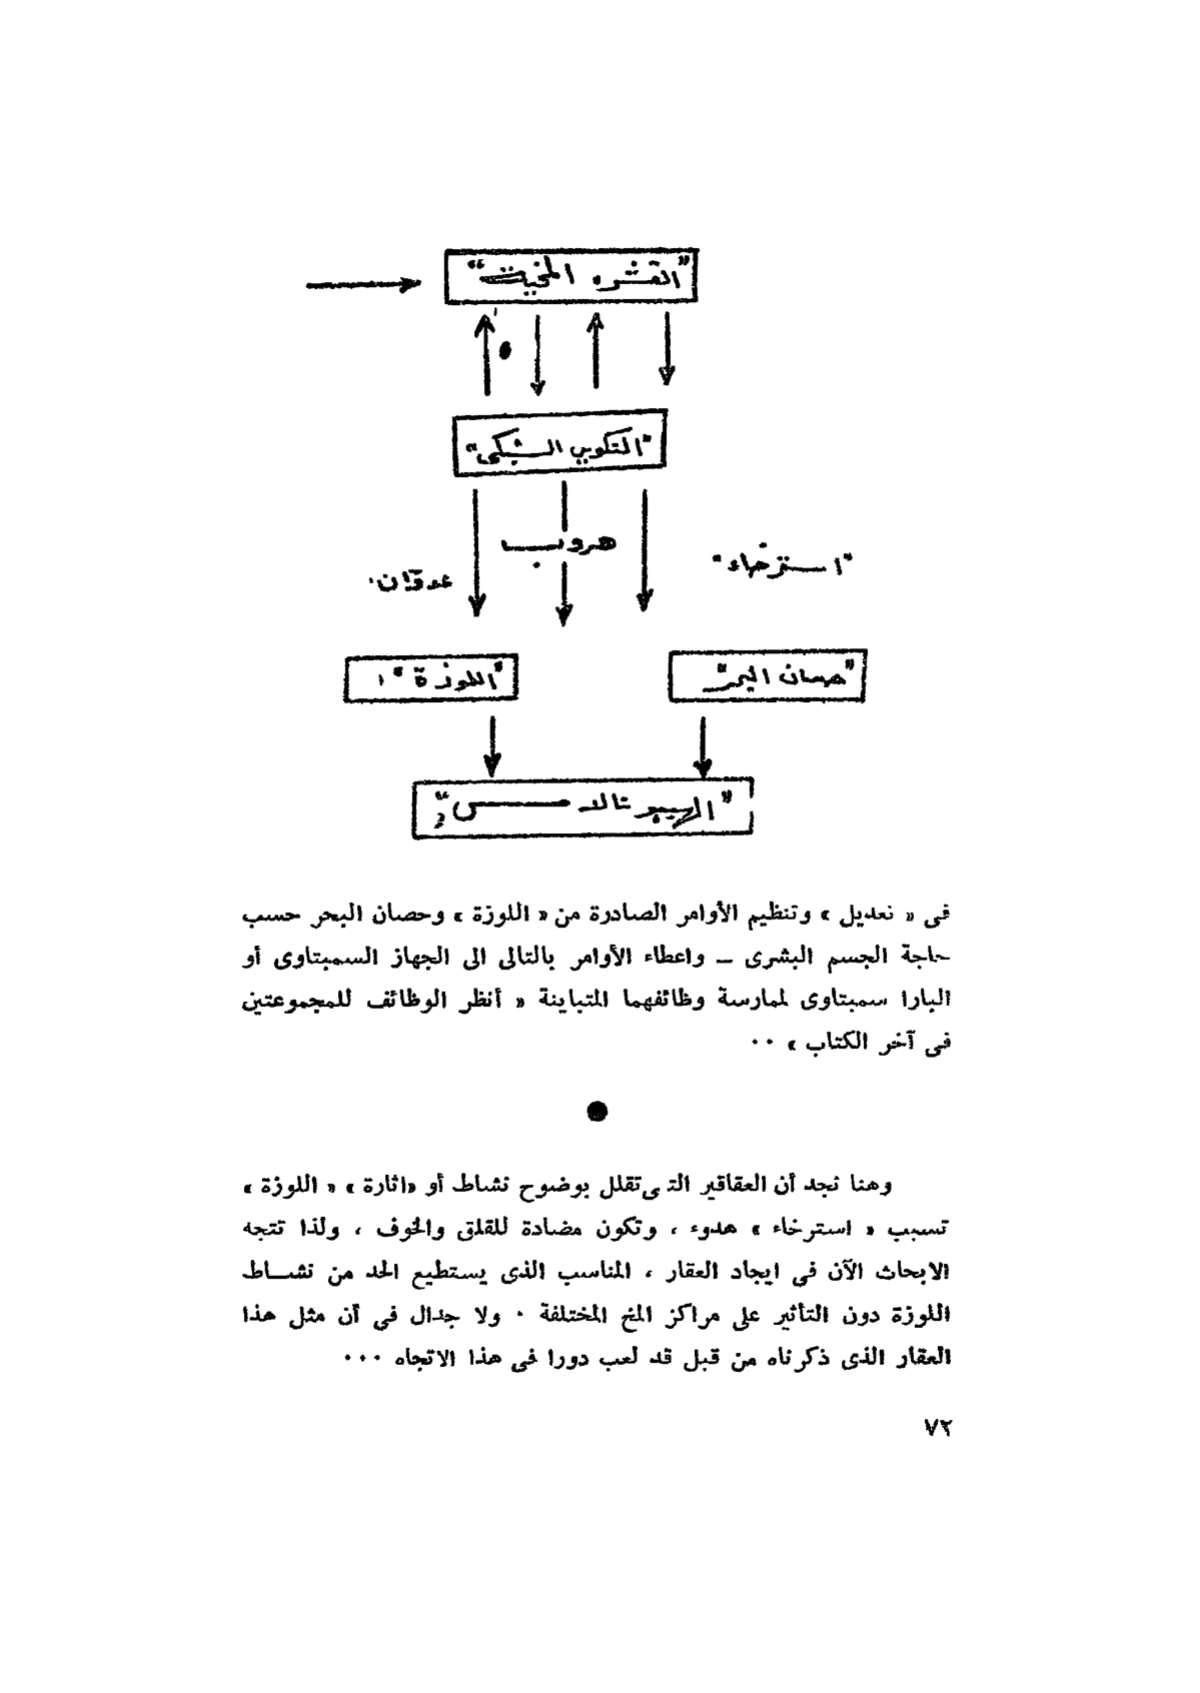 "القشره المخية"
"التكوين الشبكى"
هروب
"استرخاء"
عدوان
"حصان البحر"
"اللوزة"
"الهيبوتالامس"
فى « تعديل » وتنظيم الأوامر الصادرة من « اللوزة » وحصان البحر حسب
حاجة الجسم البشرى ــ واعطاء الأوامر بالتالى الى الجهاز السمبتاوى أو
البارا سمبتاوى لممارسة وظائفهما المتباينة « أنظر الوظائف للمجموعتين
فى آخر الكتاب » ٠٠
وهنا نجد أن العقاقير التى تقلل بوضوح نشاط أو «اثارة » « اللوزة »
تسبب « استرخاء » هدوء ، وتكون مضادة للقلق والخوف ، ولذا تتجه
الابحاث الآن فى ايجاد العقار ، المناسب الذى يستطيع الحد من نشـــاط
اللوزة دون التأثير على مراكز المخ المختلفة ٠ ولا جدال فى أن مثل هذا
العقار الذى ذكرناه من قبل قد لعب دورا فى هذا الاتجاه ٠٠٠
٧٢